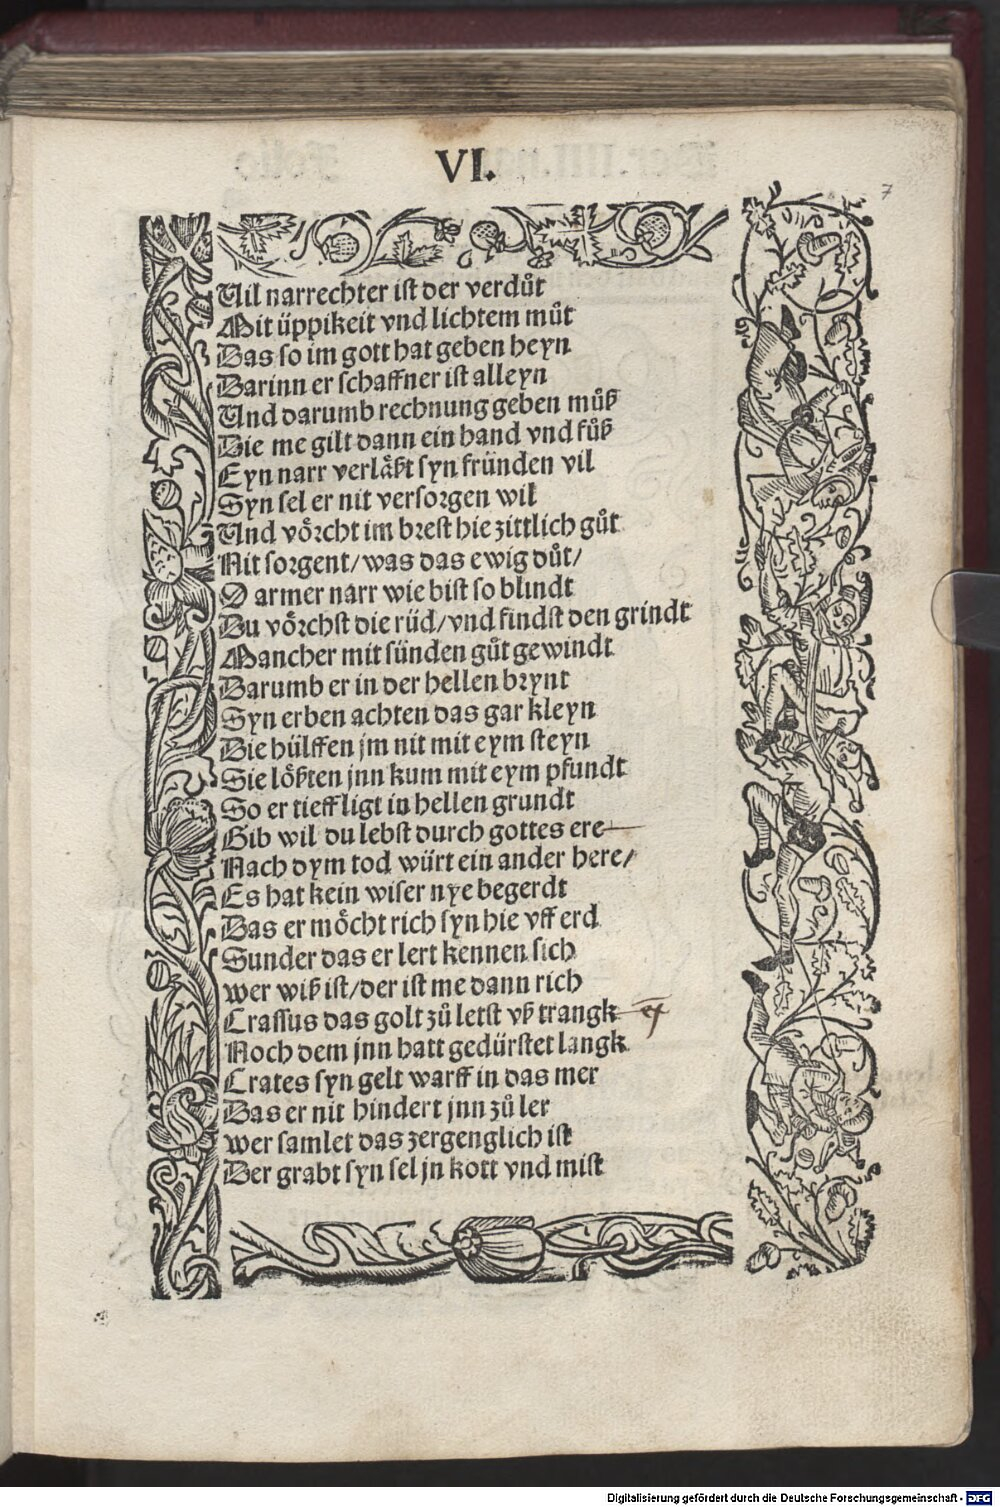 VI.
7
Uil narrechter ist der verdůt
Mit üppikeit vnd lichtem můt
Das so im gott hat geben heyn
Darinn er schaffner ist alleyn
Und darumb rechnung geben můß
Die me gilt dann ein hand vnd fůß
Eyn narr verlåßt syn fründen vil
Syn sel er nit versorgen wil
Und vörcht im brest hie zittlich gůt
Nit sorgent/ was das ewig důt/
O armer narr wie bist so blindt
Du vörchst die rüd/ vnd findst den grindt
Mancher mit sünden gůt gewindt
Darumb er in der hellen brynt
Syn erben achten das gar kleyn
Die hülffen jm nit mit eym steyn
Sie lößten jnn kum mit eym pfundt
So er tieff ligt in hellen grundt
Gib wil du lebst durch gottes ere
Nach dym tod würt ein ander here/
Es hat kein wiser nye begerdt
Das er möcht rich syn hie vff erd
Sunder das er lert kennen sich
wer wiß ist/ der ist me dann rich
Crassus das golt zů letst vß trangk
Noch dem jnn hatt gedürstet langk
Crates syn gelt warff in das mer
Das er nit hindert jnn zů ler
wer samlet das zergenglich ist
Der grabt syn sel jn kott vnd mist
Digitalisierung gefördert durch die Deutsche Forschungsgemeinschaft - DFG